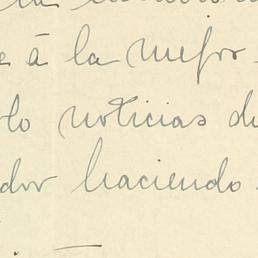 la
e à la mejor
lo noticias de
dor haciendo